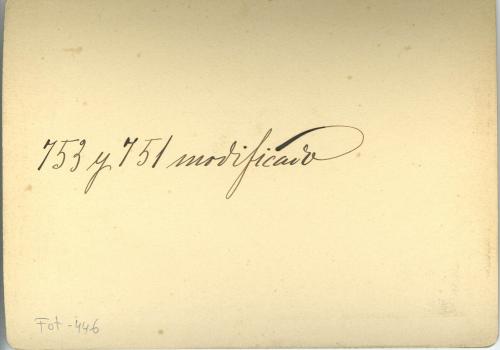 753 y 751 modificado
Fot-446